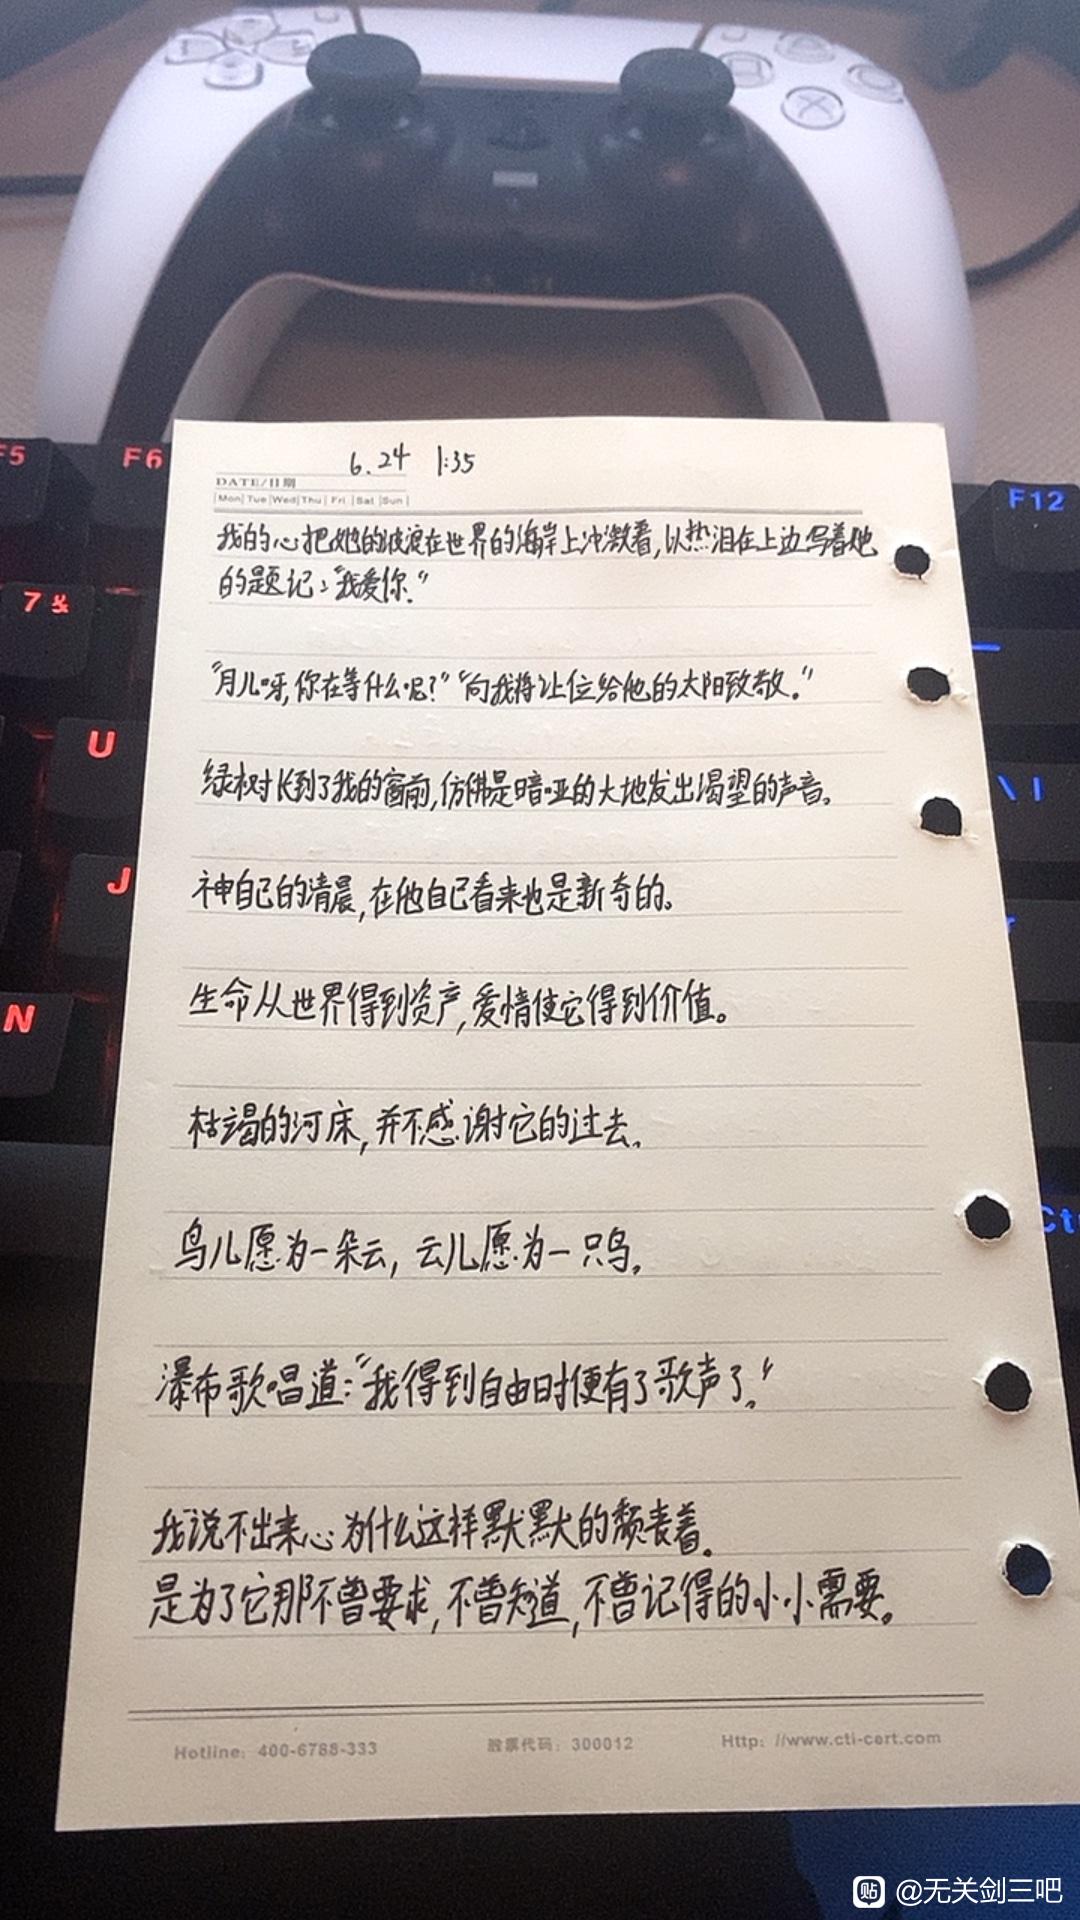 F5
F6
F12
7 &
U
\ |
J
N
Ct
6.24 1:35
DATE/日期
Mon Tue Wed Thu Fri Sat Sun
我的心把她的波浪在世界的海岸上冲激着,以热泪在上边写着她
的题记:“我爱你.”
“月儿呀,你在等什么呢?”“向我将让位给他的太阳致敬.”
绿树长到了我的窗前,仿佛是喑哑的大地发出渴望的声音。
神自己的清晨,在他自己看来也是新奇的。
生命从世界得到资产,爱情使它得到价值。
枯竭的河床,并不感谢它的过去。
鸟儿愿为一朵云,云儿愿为一只鸟。
瀑布歌唱道:“我得到自由时便有了歌声了。”
我说不出来心为什么这样默默的颓丧着。
是为了它那不曾要求,不曾知道,不曾记得的小小需要。
Hotline: 400-6788-333
股票代码: 300012
Http: //www.cti-cert.com
贴 @无关剑三吧